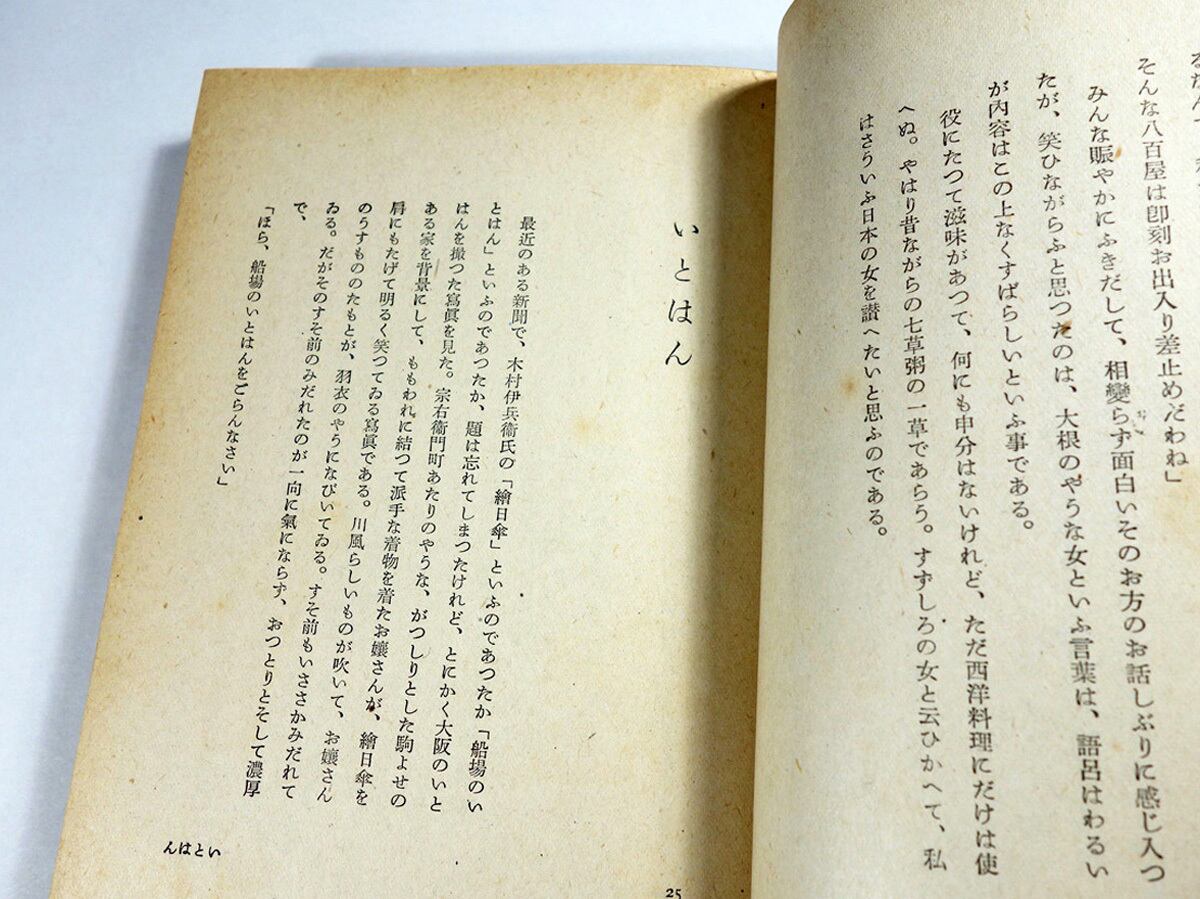 そんな八百屋は即刻お出入り差止めだわね」
みんな賑やかにふきだして、相變らず面白いそのお方のお話しぶりに感じ入つ
たが、笑ひながらふと思つたのは、大根のやうな女といふ言葉は、語呂はわるい
が内容はこの上なくすばらしいといふ事である。
役にたつて滋味があつて、何にも申分はないけれど、ただ西洋料理にだけは使
へぬ。やはり昔ながらの七草粥の一草であらう。すずしろの女と云ひかへて、私
はさういふ日本の女を讃へたいと思ふのである。
いとはん
最近のある新聞で、木村伊兵衞氏の「繪日傘」といふのであつたか「船場のい
とはん」といふのであつたか、題は忘れてしまつたけれど、とにかく大阪のいと
はんを撮つた寫眞を見た。宗右衞門町あたりのやうな、がつしりとした駒よせの
ある家を背景にして、ももわれに結つて派手な着物を着たお孃さんが、繪日傘を
肩にもたげて明るく笑つてゐる寫眞である。川風らしいものが吹いて、お孃さん
のうすもののたもとが、羽衣のやうになびいてゐる。すそ前もいささかみだれて
ゐる。だがそのすそ前のみだれたのが一向に氣にならず、おつとりとそして濃厚
で、
「ほら、船場のいとはんをごらんなさい」
んはとい
25